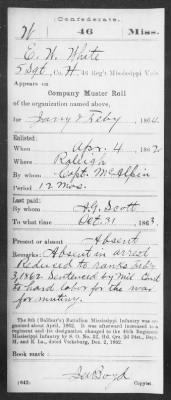 Confederate.
W 46 Miss.
E. W. White
5 Sgt, Co. H, 46 Reg't Mississippi Vols.
Appears on
Company Muster Roll
of the organization named above,
for Jany & Feby, 1864.
Enlisted:
When Apr. 4, 1862
Where Raleigh
By whom Capt. McAlpin
Period 12 Mos.
Last paid:
By whom J. G. Scott
To what time Oct. 31, 1863.
Present or absent Absent
Remarks: Absent in arrest
Reduced to ranks Febr
3, 1862 Sentenced by Mil. Court
to hard labor for the war
for mutiny.
The 6th (Balfour's) Battalion Mississippi Infantry was or-
ganized about April, 1862. It was afterward increased to a
regiment and its designation changed to the 46th Regiment
Mississippi Infantry by S. O. No. 82, Hd. Qrs. 2d Dist., Dept.
M. and E. La., dated Vicksburg, Dec. 2, 1862.
Book mark:
(642) Boyd
Copyist.